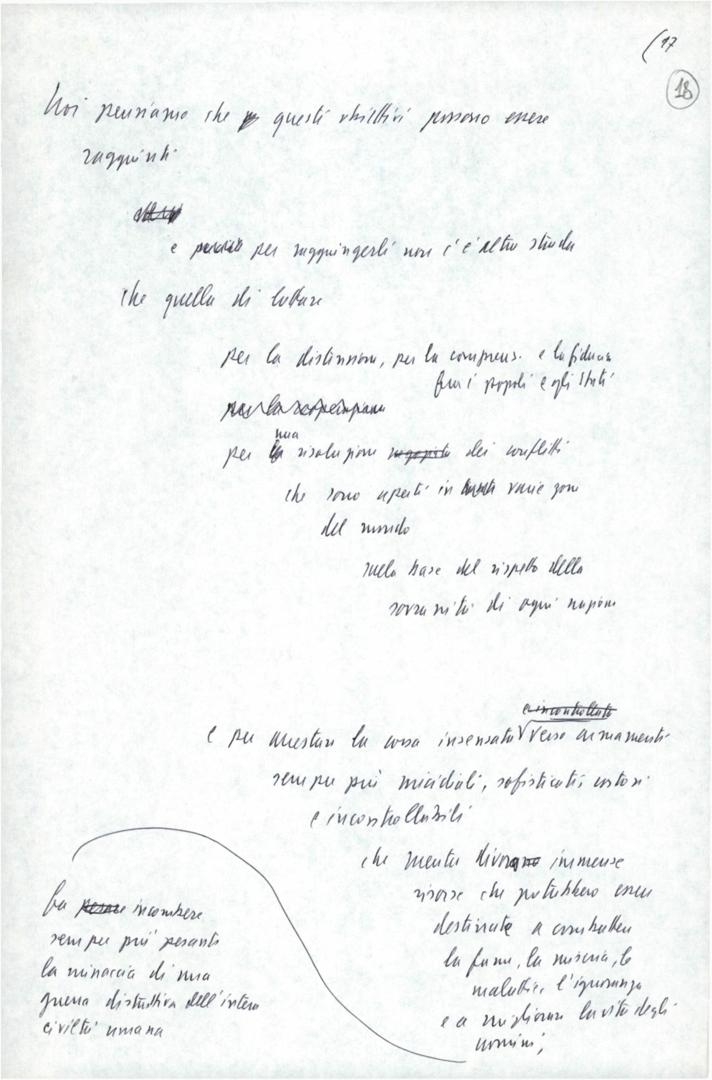 (17
18
Noi pensiamo che questi obiettivi possono essere
raggiunti
e per raggiungerli non c'è altra strada
che quella di lottare
per la distensione, per la comprens. e la fiducia
fra i popoli e gli Stati
per una risoluzione dei conflitti
che sono aperti in varie zone
del mondo
sulla base del rispetto della
sovranità di ogni nazione
e incontrollata
e per arrestare la corsa insensata verso armamenti
sempre più micidiali, sofisticati, costosi
e incontrollabili
che mentre divora immense
risorse che potrebbero essere
destinate a combattere
la fame, la miseria, le
malattie, l'ignoranza
e a migliorare la vita degli
uomini,
fa incombere
sempre più pesante
la minaccia di una
guerra distruttiva dell'intera
civiltà umana